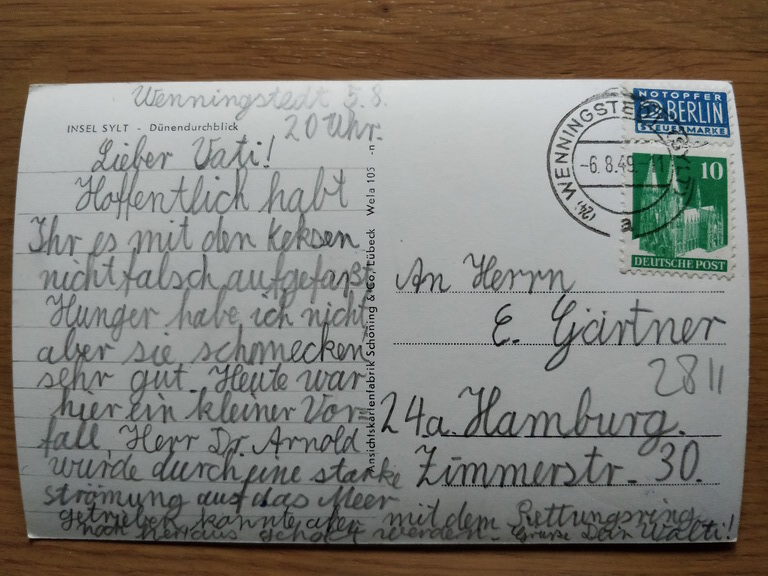 Wenningstedt 5.8.
INSEL SYLT - Dünendurchblick
20 Uhr.
Lieber Vati!
Hoffentlich habt
Ihr es mit den Keksen
nicht falsch aufgefaßt
Hunger habe ich nicht,
aber sie schmecken
sehr gut. Heute war
hier ein kleiner Vor=
fall, Herr Dr. Arnold
wurde durch eine starke
strömung auf das Meer
getrieben konnte aber mit dem Rettungsring
noch heraus geholt werden. Grüße Dein Walti!
Ansichtskartenfabrik Schöning & Co., Lübeck Wela 105 -n
NOTOPFER
2 BERLIN
STEUERMARKE
(24) WENNINGSTEDT (SYLT)
-6.8.49.-11
a
10
DEUTSCHE POST
An Herrn
E. Gärtner
2811
24a. Hamburg.
Zimmerstr. 30.